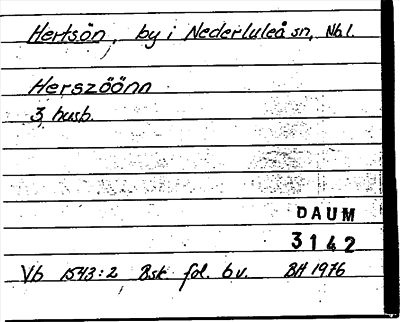 Hertsön, by i Nederluleå sn, Nbl.
Herszöönn
3 husb.
DAUM
3142
Vb 1543:2 Bsk fol. 6v. BH 1976